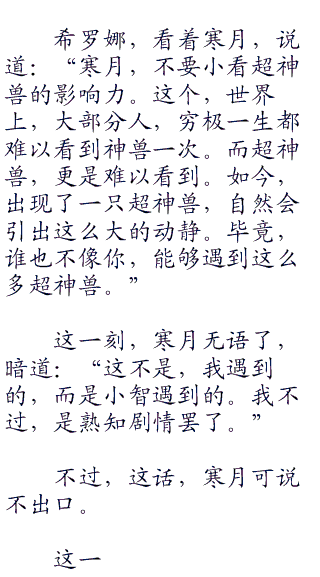 希罗娜，看着寒月，说
道：“寒月，不要小看超神
兽的影响力。这个，世界
上，大部分人，穷极一生都
难以看到神兽一次。而超神
兽，更是难以看到。如今，
出现了一只超神兽，自然会
引出这么大的动静。毕竟，
谁也不像你，能够遇到这么
多超神兽。”
这一刻，寒月无语了，
暗道：“这不是，我遇到
的，而是小智遇到的。我不
过，是熟知剧情罢了。”
不过，这话，寒月可说
不出口。
这一